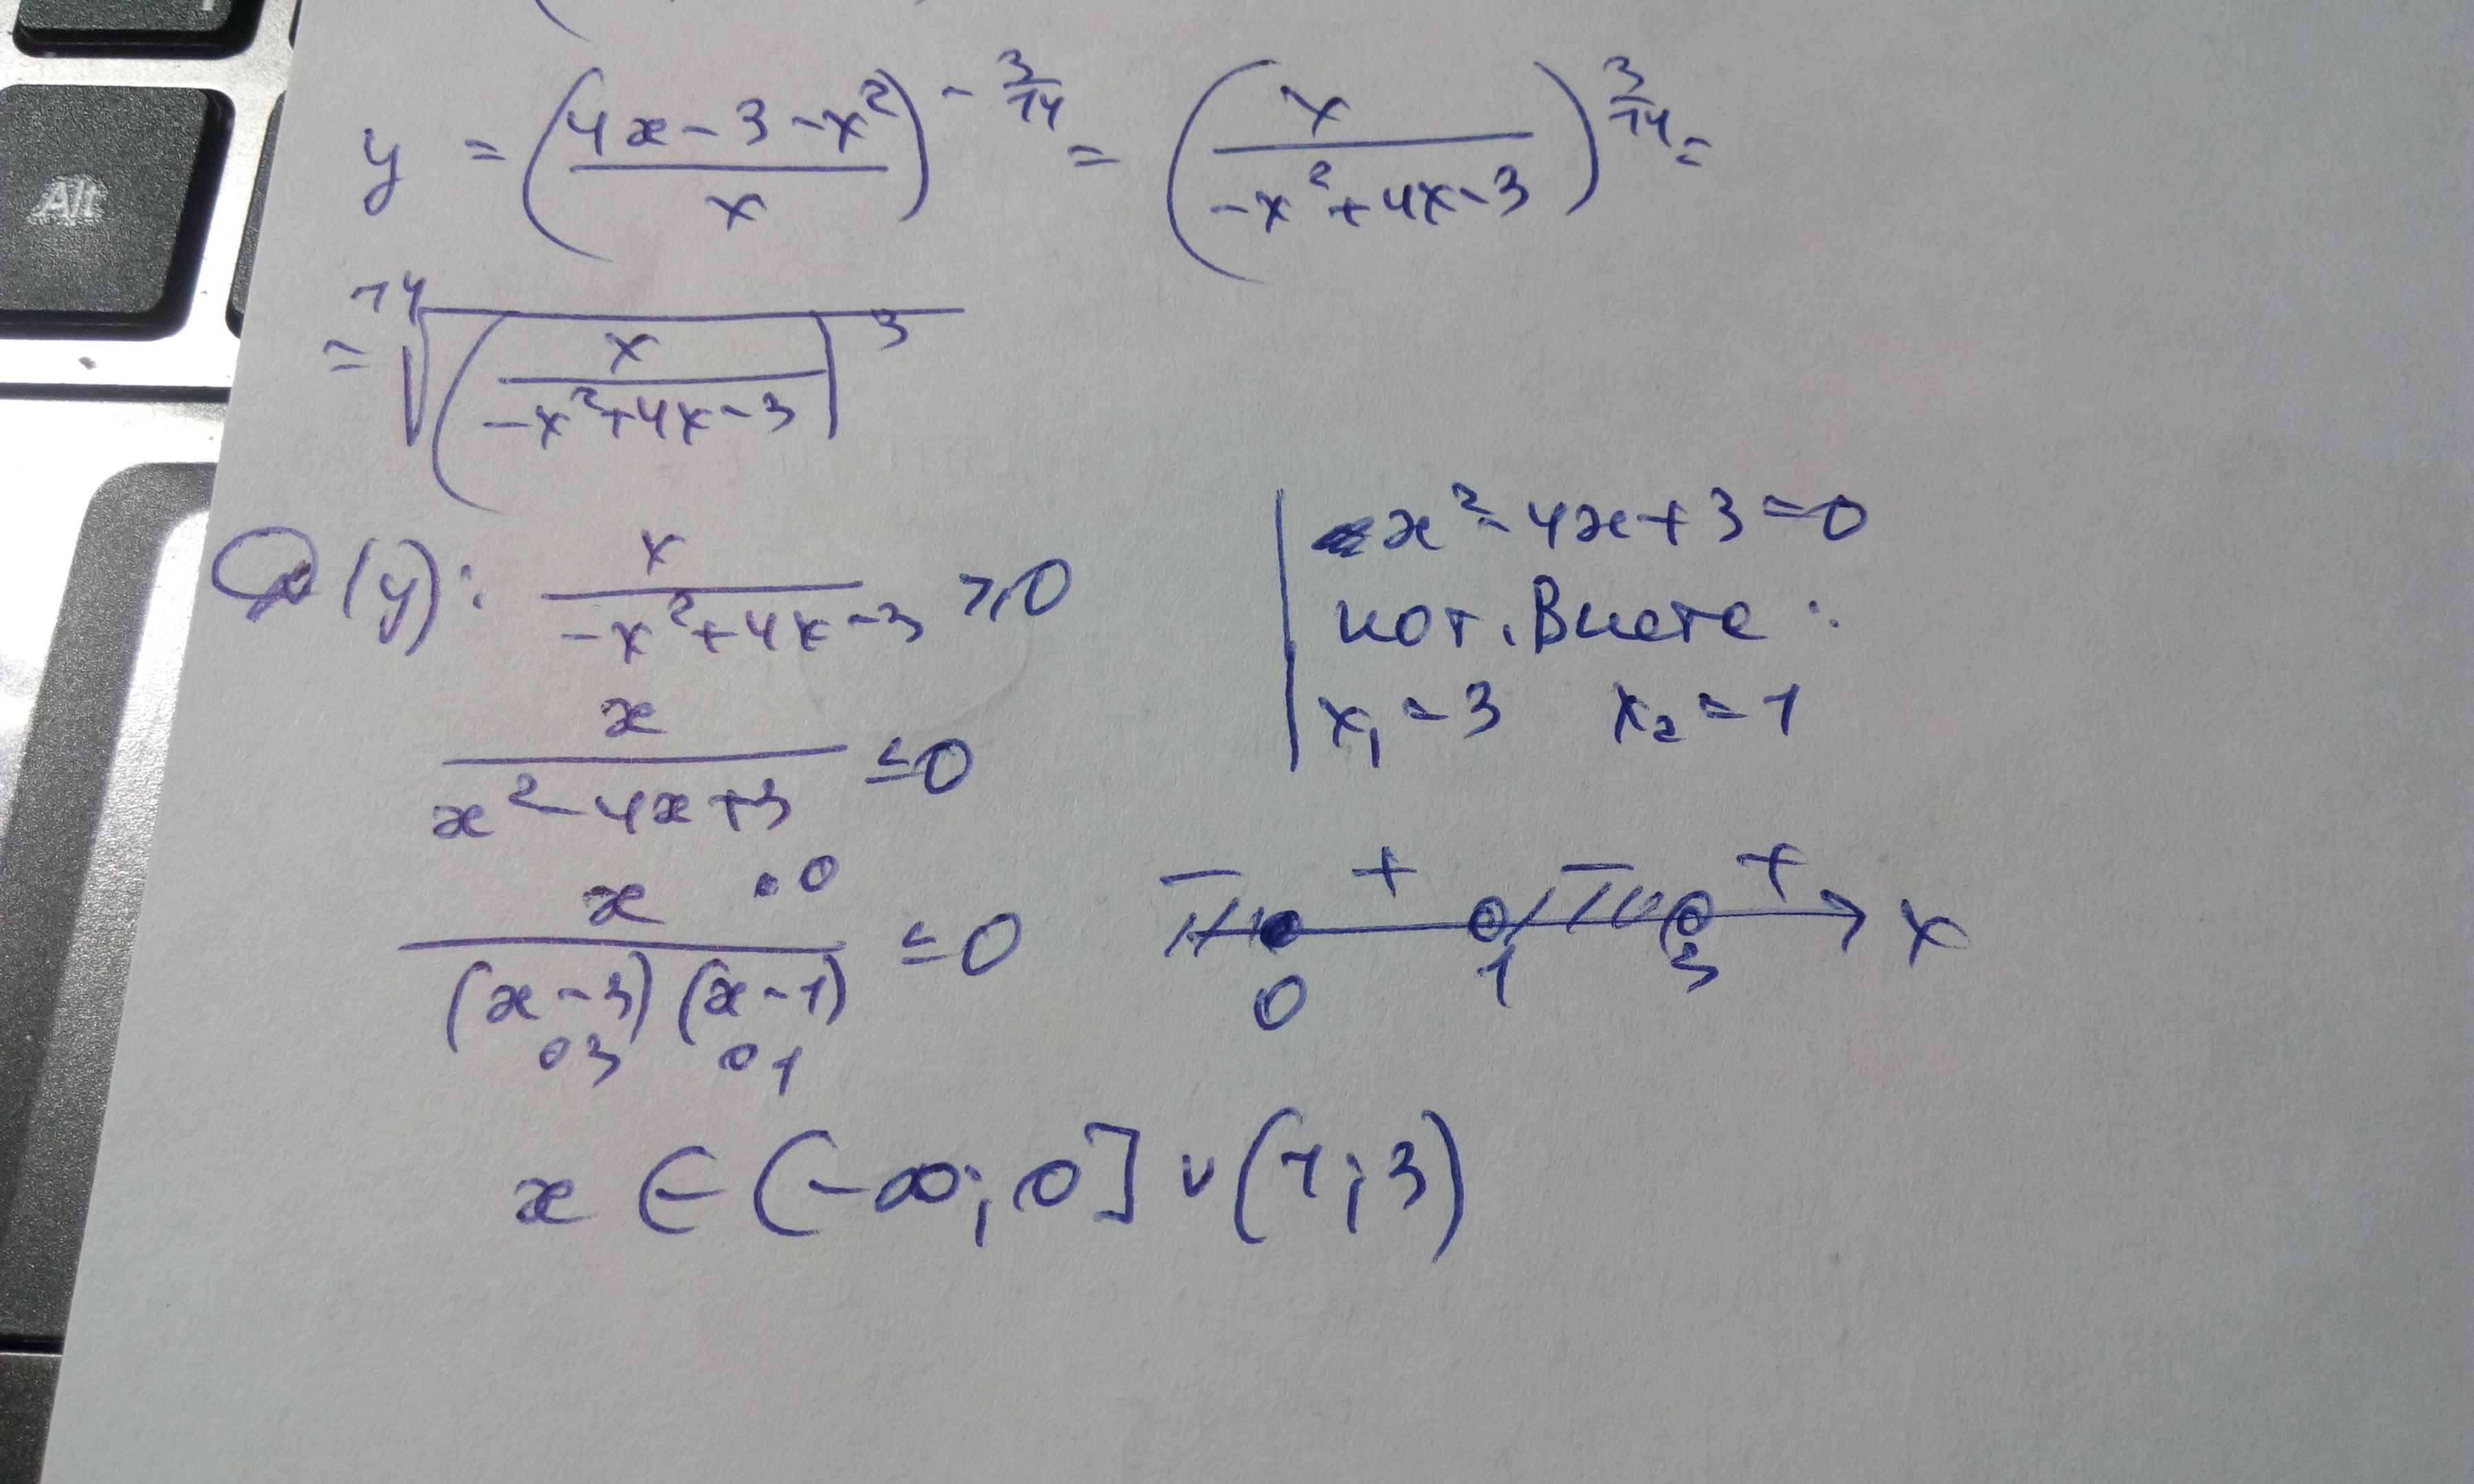 Alt
y = ((4x-3-x²)/x)^(-3/14) = (x/(-x²+4x-3))^(3/14) =
= ¹⁴√((x/(-x²+4x-3))³)
D(y): x/(-x²+4x-3) ≥ 0
x/(x²-4x+3) ≤ 0
x •0
/((x-3)(x-1)) ≤ 0
∘3 ∘1
x²-4x+3=0
по т. Виета:
x₁=3 x₂=1
− + − +
0 1 3 x
x ∈ (-∞; 0] ∪ (1; 3)